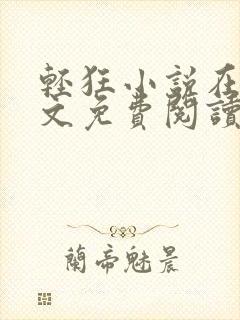 輕狂小說在
文免費閱讀
蘭帝魅晨